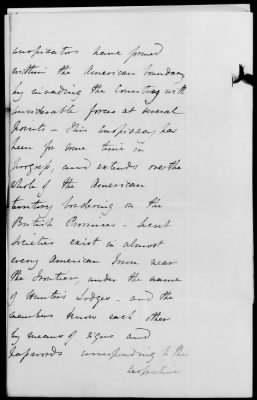 conspirators have formed
within the American boundary
by invading the Country with
considerable forces at several
points — This conspiracy has
been for some time in
progress, and extends over the
whole of the American
territory bordering on the
British Provinces — Secret
societies exist in almost
every American Town near
the Frontier, under the name
of Hunters Lodges — and the
members know each other
by means of signs and
passwords corresponding to the
respective